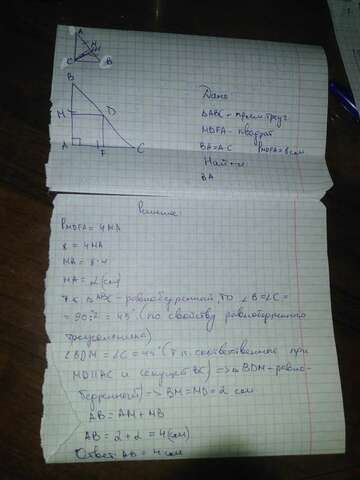 A
H
C
B
B
M
D
A
F
C
Дано
ΔABC - прям. треуг.
MDFA - квадрат
BA = AC PMDFA = 8 см
Найти
BA
Решение:
PMDFA = 4MA
8 = 4MA
MA = 8:4
MA = 2 (см)
т.к. ΔABC - равнобедренный, то ∠B = ∠C =
= 90:2 = 45° (по свойству равнобедренного
треугольника)
∠BDM = ∠C = 45° (т.к. соответственные при
MD||AC и секущей BC) => Δ BDM - равно-
бедренный => BM = MD = 2 см
AB = AM + MB
AB = 2 + 2 = 4 (см)
Ответ: AB = 4 см